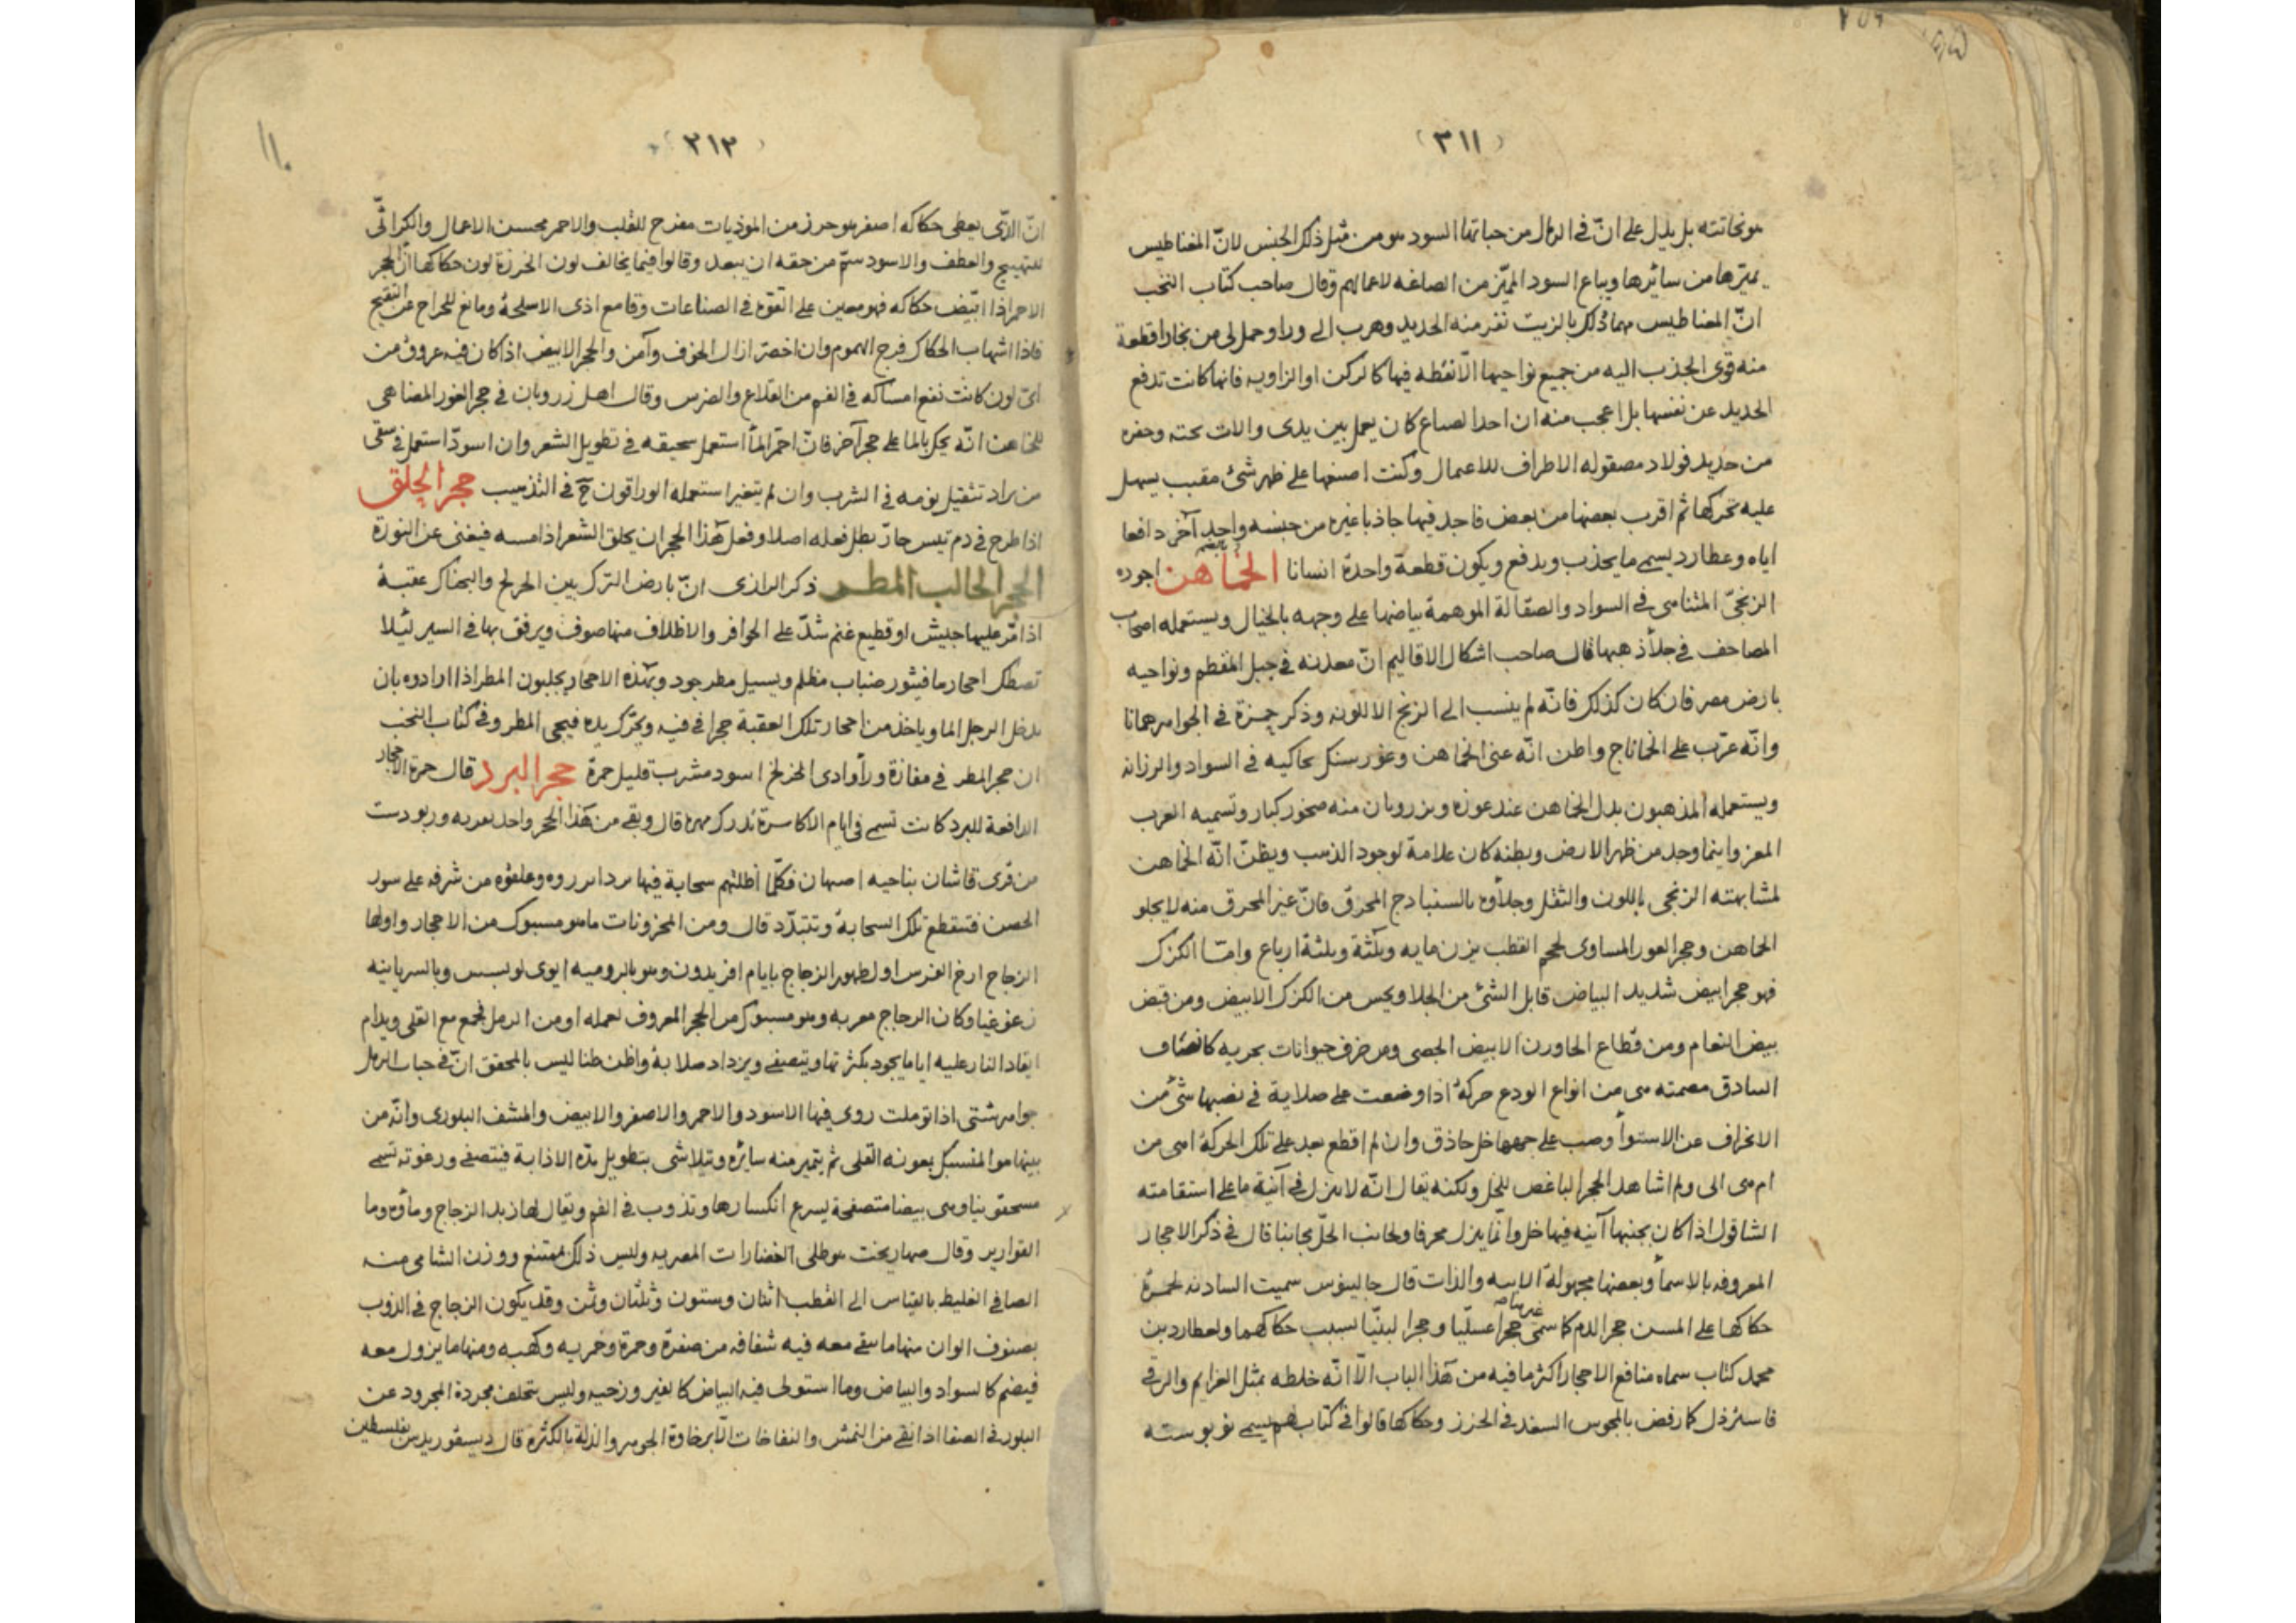 (٣١١)
هو نحاتته بل يدل على انّ في الرمال من حباتها السود هو من قبل ذلك الجنس لانّ المغناطيس
يميّزها من سائرها ويباع السود المميّز من الصاغه لاعمالهم وقال صاحب كتاب النخب
انّ المغناطيس مهما دلك بالزيت نفر منه الحديد وهرب الى ورا وحمل لى من بخارا قطعة
منه قوى الجذب اليه من جميع نواحيها الّا نقطه فيها كالركن او الزاويه فانها كانت تدفع
الحديد عن نفسها بل اعجب منه ان احدا لصناع كان يعمل بين يدى والات نحته وحفره
من حديد فولاد مصقوله الاطراف للاعمال وكنت اصنعها على ظهر شئ مقبب يسهل
عليه تحركها ثم اقرب بعضها من بعض فاجد فيها جاذبا غيره من جنسه واحد آخر دافعا
اياه وعطارد يسمى ما يجذب ويدفع ويكون قطعة واحدة انسانا الخماهن اجوده
الزنجىّ المتناهى في السواد والصقالة الموهمة بياضها على وجهه بالخيال ويستعمله اصحاب
المصاحف في جلأ ذهبها قال صاحب اشكال الاقاليم انّ معدنه في جبل المقطم ونواحيه
بارض مصر فان كان كذلك فانّه لم ينسب الى الزنج الا للونه وذكر حمزة في الجواهر خمانا
وانّه عرّب على الخماناج واظن انّه عنى الخماهن وغور سنك يحاكيه في السواد والرزانه
ويستعمله المذهبون بدل الخماهن عند عوزه وبزرويان منه صخور كبار وتسميه العرب
المغز واينما وجد من ظهر الارض وبطنه كان علامة لوجود الذهب ويظنّ انّه الخماهن
لمشابهته الزنجى باللون والثقل وجلأوه بالسنبادج المحرّق فانّ غير المحرق منه لا يجلو
الخماهن وحجر الغور المساوى لحجم القطب يزن مايه وثلثة وثلثة ارباع وامّا الكزك
فهو حجر ابيض شديد البياض قابل الشئ من الجلا ويحس من الكزك الابيض ومن قيض
بيض النعام ومن قطاع الحاورن الابيض الجصى ومن خزف حيوانات بحريه كانصاف
البنادق مصمته هى من انواع الودع حركة اذا وضعت على صلاية في نصبها شئ من
الانحراف عن الاستوأ وصب على جمعها خل حاذق وان لم اقطع بعد على تلك الحركة اهى من
ام هى الى ولم اشاهد الحجر الباغض للخل ولكنه يقال انّه لا ينزل في آنية ما على استقامته
الشاقول اذا كان بجنبها آنيه فيها خل وانّما ينزل محرفا ولجانب الخلّ مجانبا قال في ذكر الاحجار
المعروفه بالاسمأ وبعضها مجهولة الابيه والذات قال جالينوس سميت الشادنه لحمرة
حكاكها على المسن حجر الدم كما سمى غيرها حجرا عسليّا وحجرا لبنيّا بسبب حكاكهما ولعطارد بن
محمد كتاب سماه منافع الاحجار اكثر ما فيه من هذا الباب الّا انّه خلطه بمثل العزايم والرقى
فاسترذل كما رفض بالمجوس السغد في الخرز وحكاكها قالوا في كتاب لهم يسمى نو بوسته
(٣١٢)
انّ الذى يعطى حكاكه اصفر هو حرز من الموذيات مفرح للقلب والاحمر محسن الاعمال والكراثى
للتهييج والعطف والاسود سمّ من حقه ان يبعد وقالوا فيما يخالف لون الخرزة لون حكاكها انّ الحجر
الاحمر اذا ابيّض حكاكه فهو معين على القوة في الصناعات وقامع اذى الاسلحة ومانع للجراح عن التقيح
فاذا اشهاب الحكاك فرج الهموم وان اخضر ازال الخوف وآمن والحجر الابيض اذا كان فيه عروق من
اى لون كانت نفع امساكه في الفم من القلاع والضرس وقال اهل زرويان في حجر الغور المضاهى
للخماهن انّه يحك بالما على حجر آخر فانّ احمّر المأ استعمل سحيقه في تطويل الشعر وان اسودّ استعمل في سقى
من يراد تثقيل نومه في الشرب وان لم يتغير استعمله الوراقون في التذهيب حجر الحلق
اذا طرح في دم تيس حارّ بطل فعله اصلا وفعل هذا الحجر ان يحلق الشعر اذا مسه فيغنى عن النورة
الحجر الجالب المطر ذكر الرازى انّ بارض الترك بين الخرلخ والبجناك عقبة
اذا مرّ عليها جيش او قطيع غنم شدّ على الحوافر والاظلاف منها صوف ويرفق بها في السير لئلا
تصطك احجارها فيثور ضباب مظلم ويسيل مطر جود وبهذه الاحجار يجلبون المطر اذا ارادوه بان
يدخل الرجل الما وياخذ من احجار تلك العقبة حجرا في فيه ويحرّك يده فيجى المطر وفي كتاب النخب
ان حجر المطر في مفازة ورأ وادى الخزلخ اسود مشرب قليل حمرة حجر البرد قال حمزة الاحجار
الدافعة للبرد كانت تسمى في ايام الاكاسرة تذرك مهره قال وبقى من هذا الحجر واحد بقريه وربودست
من قرى قاشان بناحيه اصبهان فكلّما اظلتهم سحابة فيها برد ابرزوه وعلقوه من شرفه على سور
الحصن فتنقطع تلك السحابة وتتبدّد قال ومن المخزونات ما هو مسبوك من الاحجار واولها
الزجاج ارخ الفرس اول ظهور الزجاج بايام افريدون وهو بالروميه ايوى لويس وبالسريانيه
زعوغيا وكان الزجاج معربه وهو مسبوك من الحجر المعروف لعمله او من الرمل يجمع مع القلى ويدام
ايقاد النار عليه اياما يجود بكثرتها ويتصفى ويزداد صلابة واظن ظنا ليس بالمحقق انّ في حبات الرمل
جواهر شتى اذا توملت روى فيها الاسود والاحمر والاصفر والابيض والمشف البلورى وانّه من
بينها هو المنسبك بعونه القلى ثم يتميز منه سائره ويتلاشى بتطويل مدّة الاذابة فيتصفى ورغوته تسمى
مسحقونيا وهى بيضا متصفحة يسرع انكسارها وتذوب في الفم ويقال لها زبد الزجاج ومأوه وما
القوارير وقال صهاربخت هو طلى الغضارات المصريه وليس ذلك بممتنع ووزن الشامى منه
الصافى الغليظ بالقياس الى القطب اثنان وستون وثلثان وثمن وقد يكون الزجاج في الذوب
بصنوف الوان منها ما يبقى معه فيه شفافه من صفرة وحمرة وخمريه وكهبه ومنها ما يزول معه
فيضم كالسواد والبياض وما استولى فيه البياض كالغير وزجيه وليس يتخلف مجردة المجرود عن
البلور في الصفا اذا نقى من النمش والنفاخات الّا برخاوة الجوهر والذلة بالكثرة قال ديسقوريدس بفلسطين